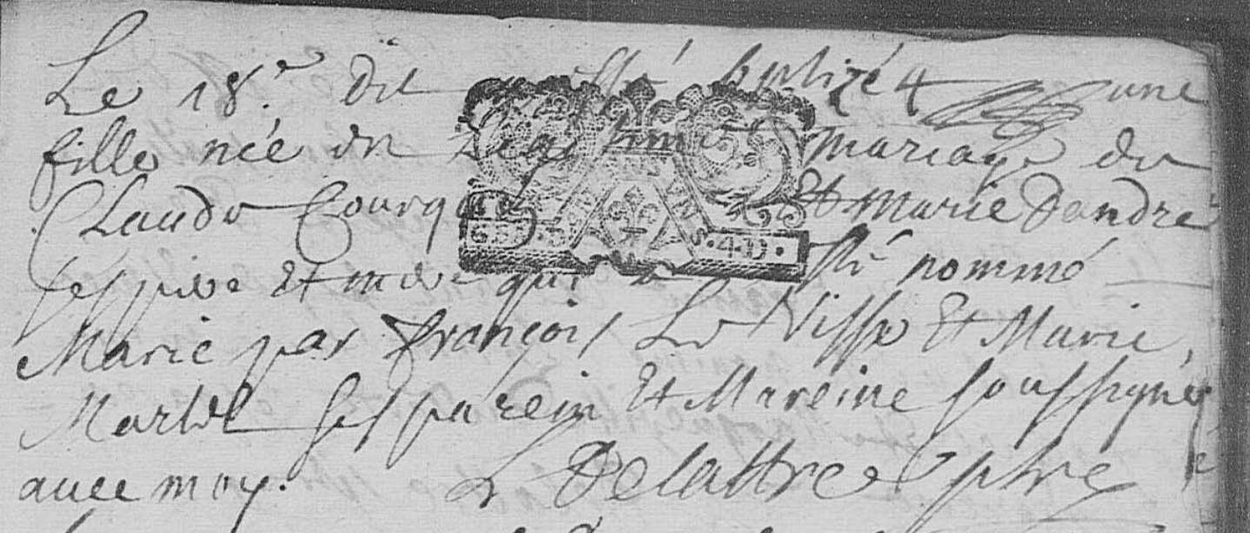 Le 18.e dit esté baptizé une
fille née du Legitime mariage de
Claude Et Marie Dandre
ses pere Et mere qui a esté nommé
Marie par françois Le Et Marie
Martel ses parein Et Mareine soussignés
avec moy. Delattre ptre
S.4.D.